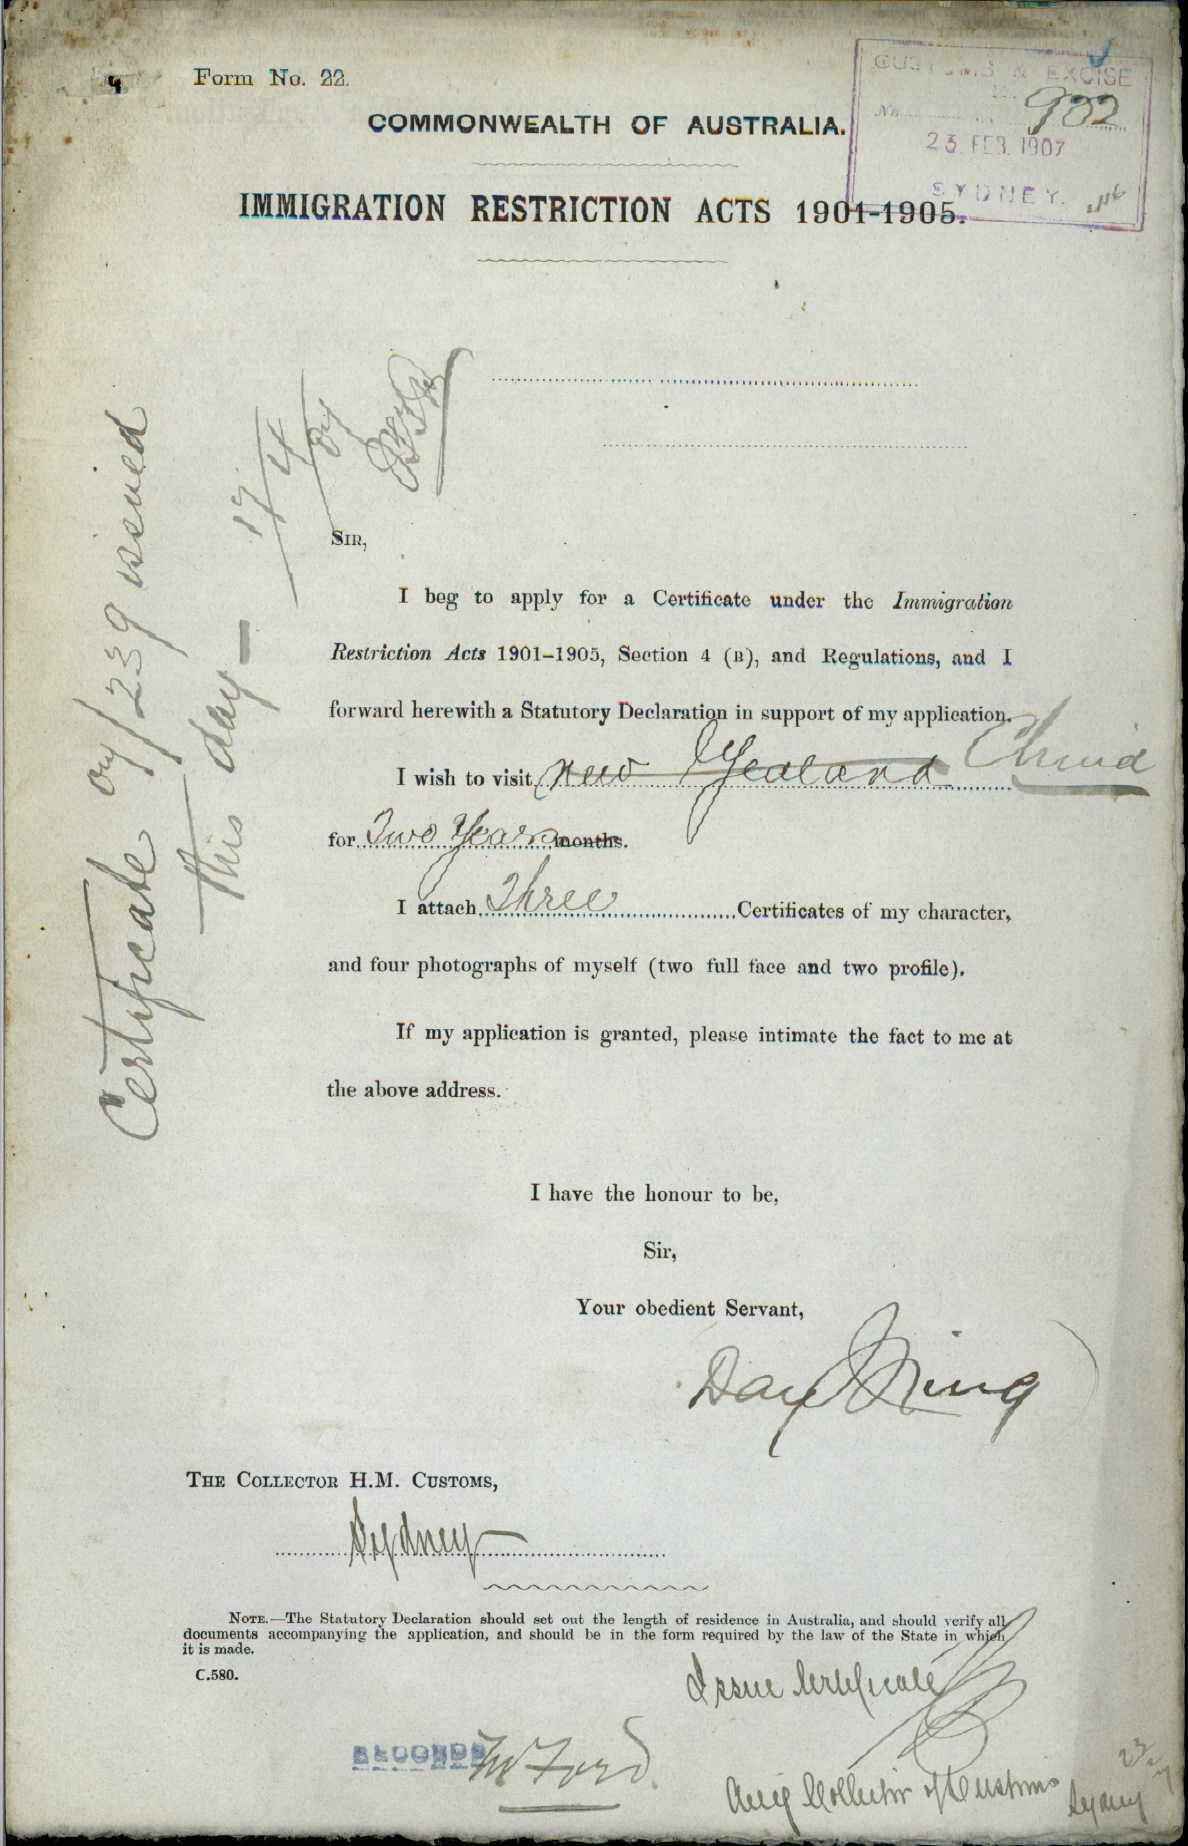 Form No. 22.
CUSTOMS & EXCISE
No. 902
23 FEB. 1907
SYDNEY.
COMMONWEALTH OF AUSTRALIA.
IMMIGRATION RESTRICTION ACTS 1901-1905.
Certificate 07/239 issued
this day — 17/4/07
SIR,
I beg to apply for a Certificate under the Immigration
Restriction Acts 1901–1905, Section 4 (B), and Regulations, and I
forward herewith a Statutory Declaration in support of my application.
I wish to visit New Zealand China
for Two Years months.
I attach Three Certificates of my character,
and four photographs of myself (two full face and two profile).
If my application is granted, please intimate the fact to me at
the above address.
I have the honour to be,
Sir,
Your obedient Servant,
THE COLLECTOR H.M. CUSTOMS,
Sydney
NOTE.—The Statutory Declaration should set out the length of residence in Australia, and should verify all
documents accompanying the application, and should be in the form required by the law of the State in which
it is made.
C.580.
Issue Certificate
RECORDS
Mr Ford
Actg Collector of Customs
Sydney